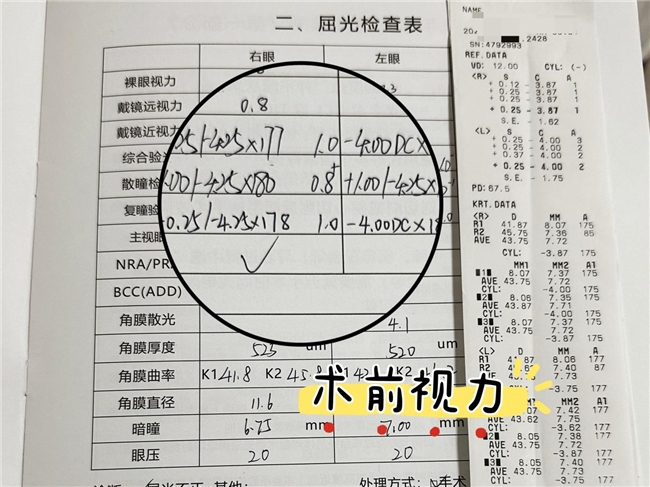 二、屈光检查表
右眼 左眼
裸眼视力
戴镜远视力 0.8
戴镜近视力
-4.25×177 1.0 -4.00DC×
综合验
散瞳检 .00/-4.25×180 0.8⁺ +1.00/-4.25×
复瞳验 -0.25/-4.25×178 1.0 -4.00DC×
主视眼 ✓
NRA/PR
BCC(ADD)
角膜散光 4.1
角膜厚度 523 um 520
角膜曲率 K1 41.8 K2 45.8
角膜直径 11.6
暗瞳 6.75 mm 7.00 mm
眼压 20 20
处理方式:
术前视力
NAME
.2428
SN:4792993
REF.DATA
VD: 12.00 CYL: (-)
<R> S C A
+ 0.12 - 3.87 1
+ 0.25 - 3.87 1
+ 0.25 - 3.87 1
+ 0.25 - 3.87 1
S.E. - 1.62
<L>
+ 0.25 - 4.00 3
+ 0.25 - 4.00 2
+ 0.37 - 4.00 2
+ 0.25 - 4.00 2
S.E. - 1.75
PD: 67.5
KRT.DATA
<R> D MM A
R1 41.87 8.07 175
R2 45.75 7.36 85
AVE 43.75 7.72
CYL: -3.87 175
MM1 MM2 A1
1 8.07 7.37 175
AVE 43.75 7.72
CYL: -4.00 175
2 8.06 7.35 175
AVE 43.87 7.71
CYL: -4.00 175
3 8.07 7.37 175
AVE 43.75 7.72
CYL: -3.87 175
<L> D MM A
R1 8.06 177
R2 7.40 87
AVE 7.73
-3.75 177
MM2 A1
7.42 177
AVE 43.62 7.75
-3.62 177
2 8.05 7.38 177
AVE 43.75 7.72
CYL: -3.87 177
3 8.05 7.40 177
AVE 43.75 7.73
CYL: -3.75 177